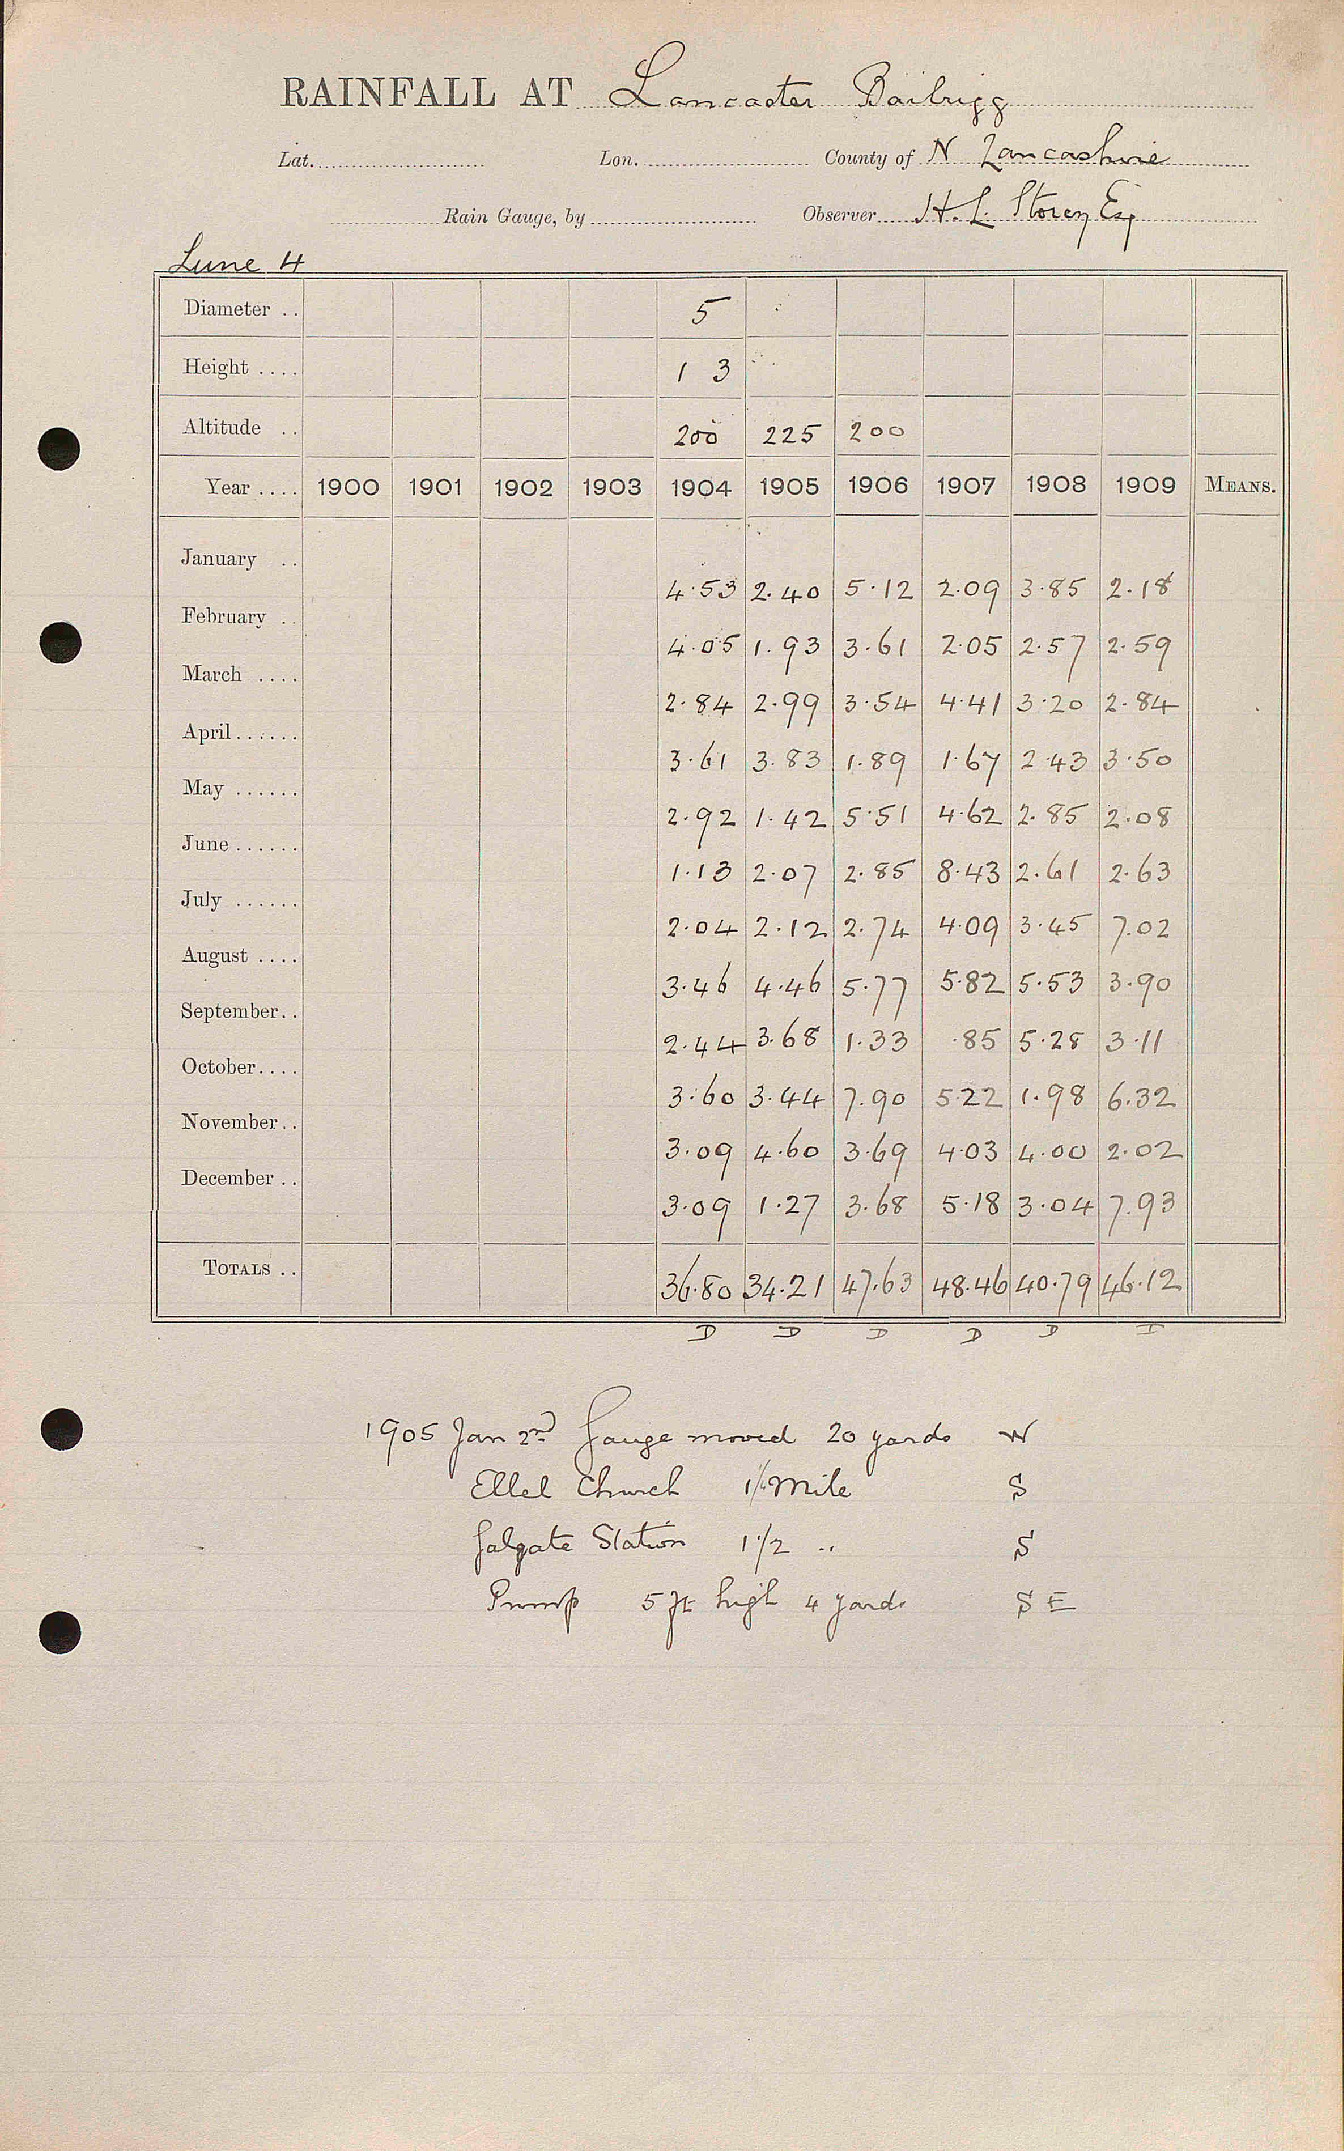 RAINFALL AT Lancaster Bailrigg
Lat. Lon. County of N Lancashire
Rain Gauge, by Observer H. L. Storey Esq
Lune 4
Diameter .. 5
Height .... 1 3
Altitude .. 200 225 200
Year .... 1900 1901 1902 1903 1904 1905 1906 1907 1908 1909 MEANS.
January .. 4.53 2.40 5.12 2.09 3.85 2.18
February .. 4.05 1.93 3.61 2.05 2.57 2.59
March .... 2.84 2.99 3.54 4.41 3.20 2.84
April...... 3.61 3.83 1.89 1.67 2.43 3.50
May ...... 2.92 1.42 5.51 4.62 2.85 2.08
June...... 1.13 2.07 2.85 8.43 2.61 2.63
July ...... 2.04 2.12 2.74 4.09 3.45 7.02
August .... 3.46 4.46 5.77 5.82 5.53 3.90
September.. 2.44 3.68 1.33 .85 5.28 3.11
October.... 3.60 3.44 7.90 5.22 1.98 6.32
November.. 3.09 4.60 3.69 4.03 4.00 2.02
December .. 3.09 1.27 3.68 5.18 3.04 7.93
TOTALS .. 36.80 34.21 47.63 48.46 40.79 46.12
D D D D D I
1905 Jan 2nd Gauge moved 20 yards W
Ellel Church Mile S
Galgate Station 1 1/2 " S
Pump 5 ft high 4 yards S E